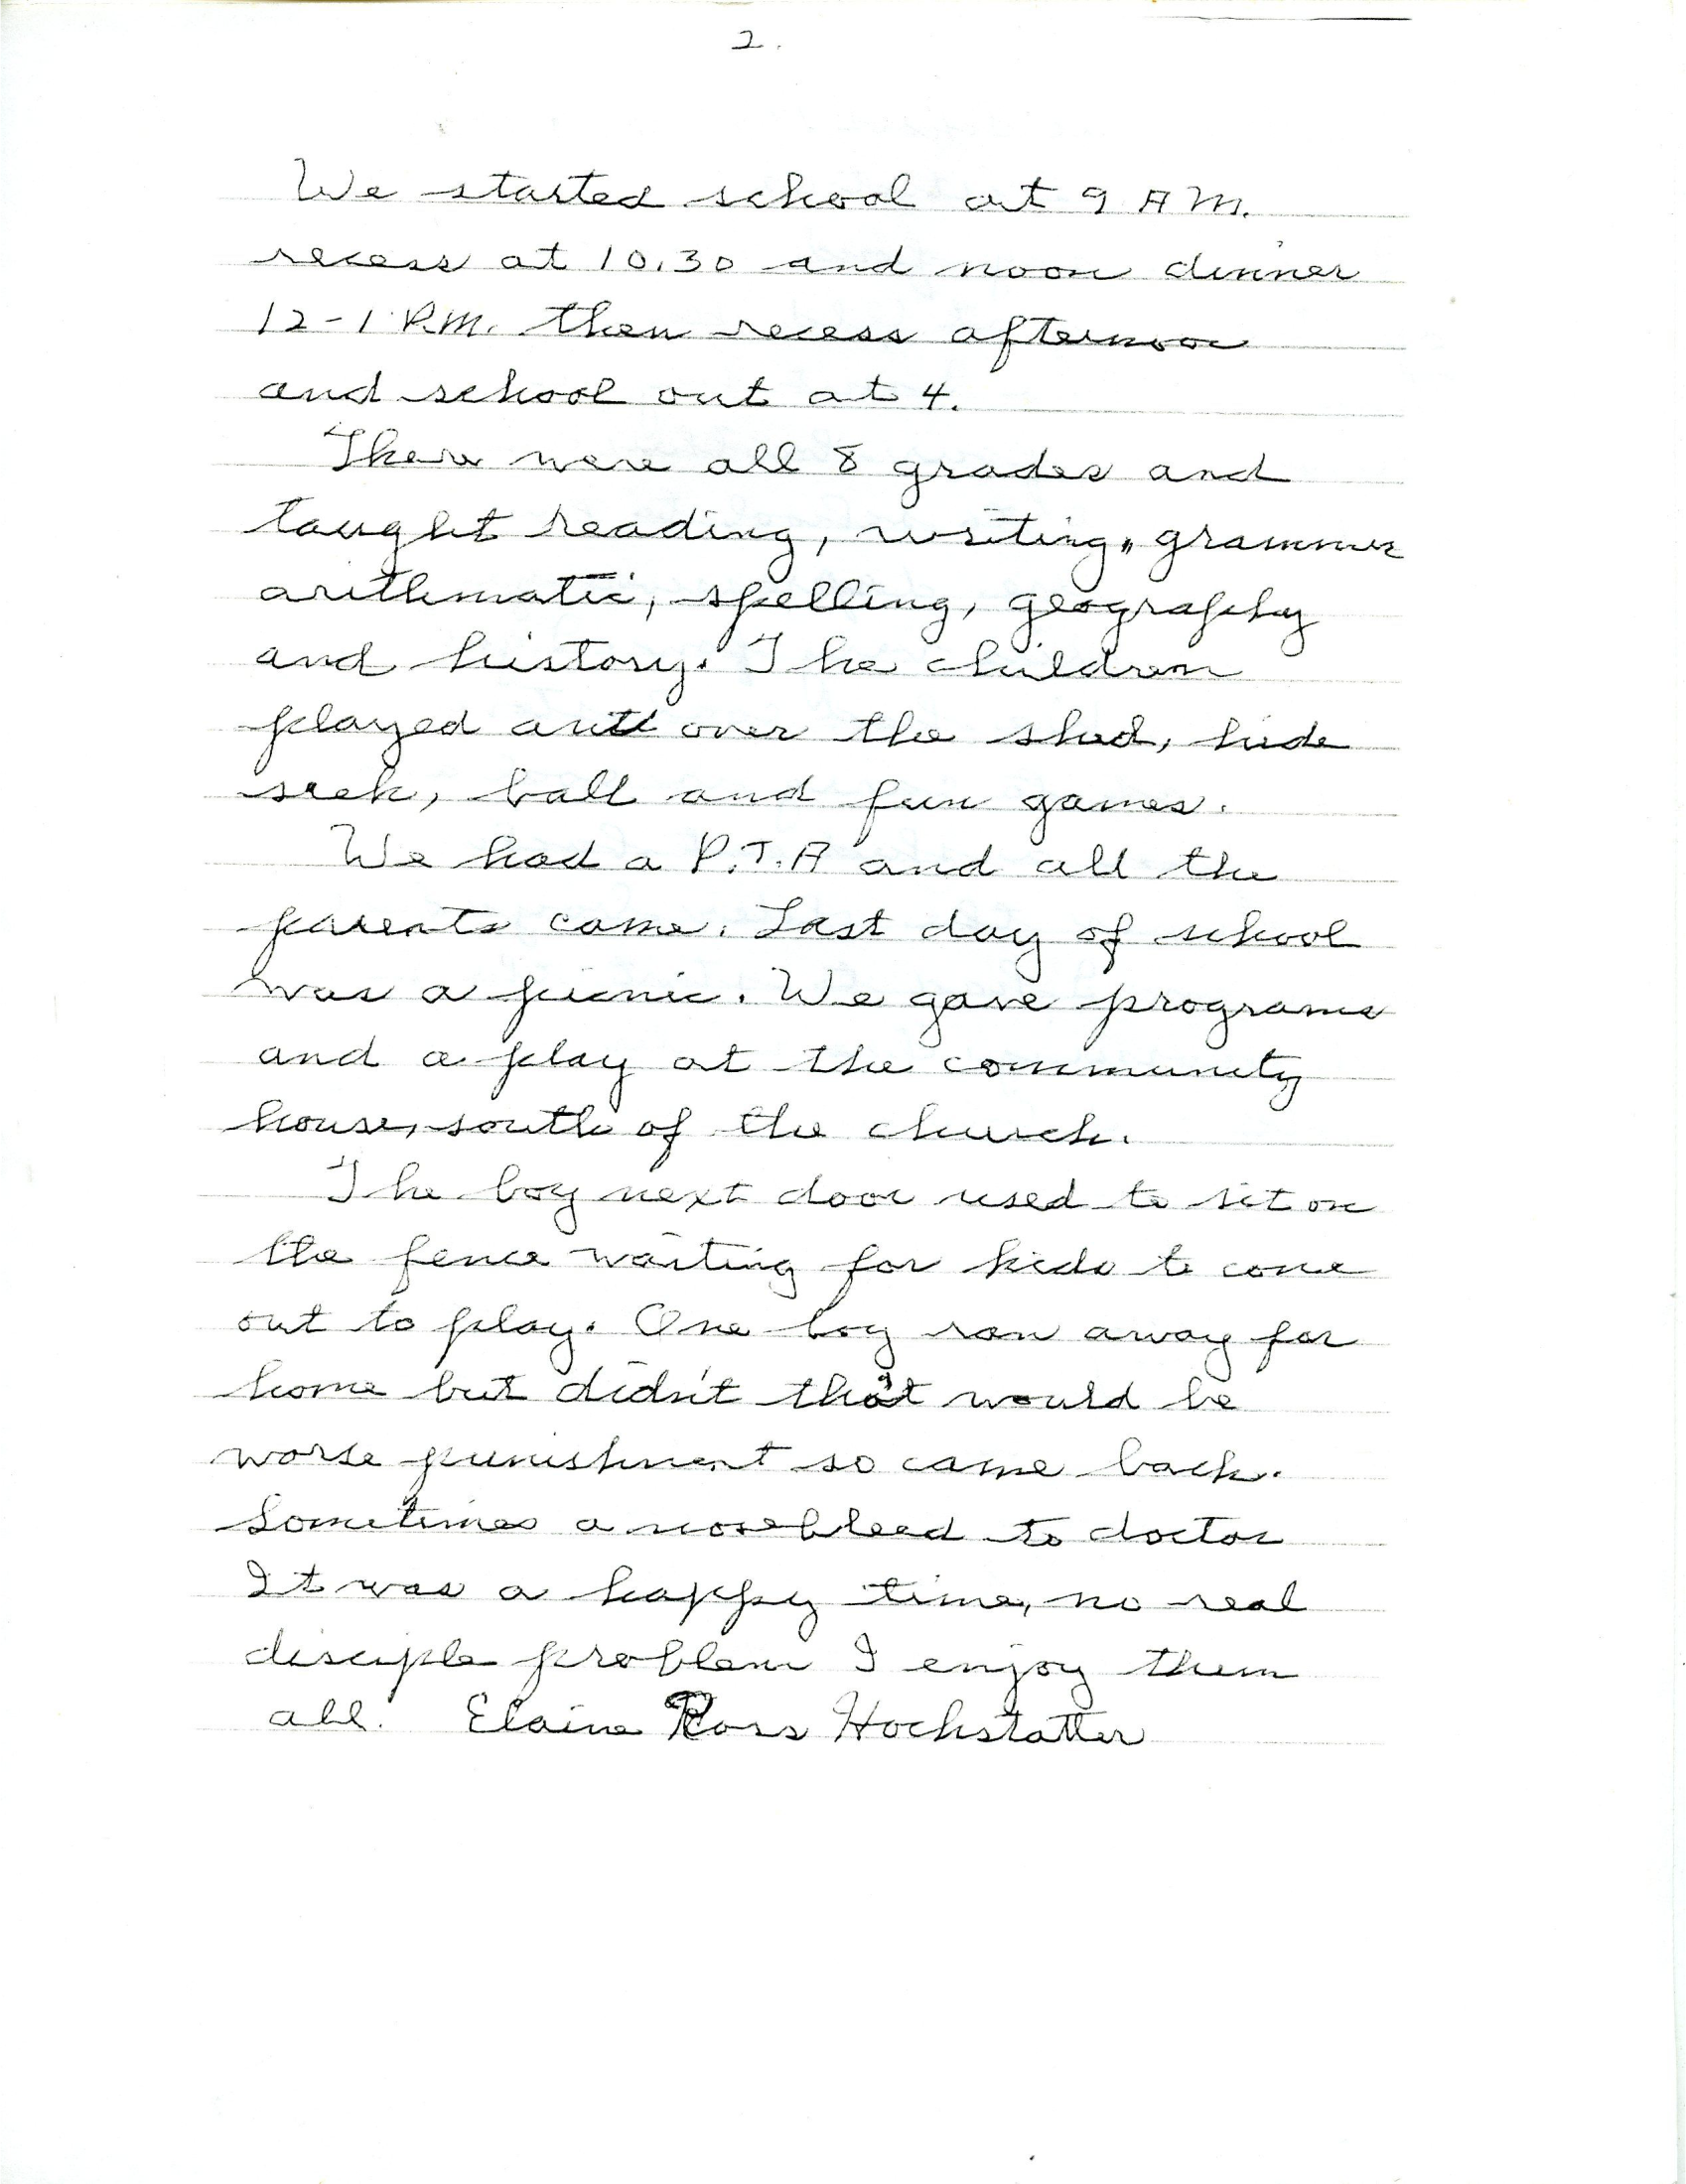 2.
We started school at 9 A M.
recess at 10.30 and noon dinner
12-1 P.M. then recess afternoon
and school out at 4.
There were all 8 grades and
taught reading, writing, grammer
arithmatic, spelling, geography
and history. The children
played anti over the shed, hide
seek, ball and fun games.
We had a P.T.A and all the
parents came. Last day of school
was a picnic. We gave programs
and a play at the community
house, south of the church.
The boy next door used to sit on
the fence waiting for kids to come
out to play. One boy ran away for
home but didn't that would be
worse punishment so came back.
Sometimes a nosebleed to doctor
It was a happy time, no real
disciple problem I enjoy them
all. Elaine Ross Hochstatter